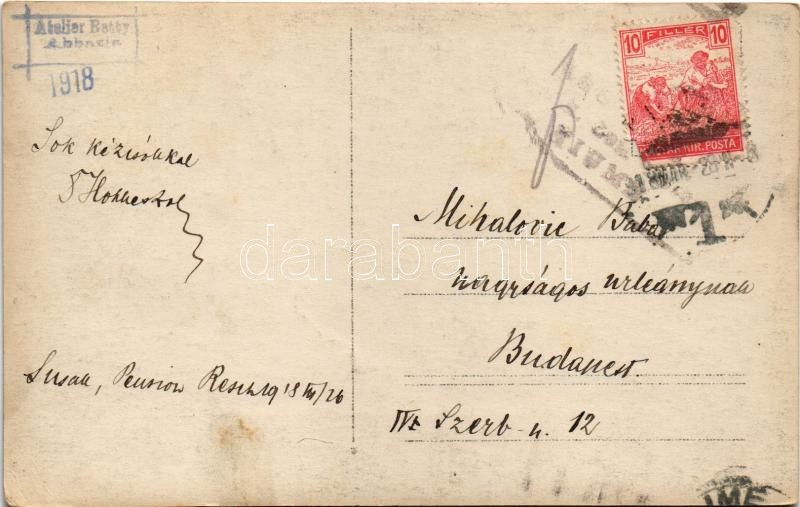 Atelier Betty
Abbazia
1918
Sok kézcsókkal
Susak, Pension Reschzig 18 III/26
10 FILLER 10
MAGYAR KIR. POSTA
T
Mihalovic
nagyságos urleánynak
Budapest.
IV. Szerb-u. 12
darabanth